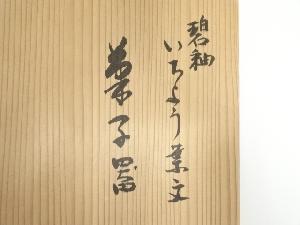 碧釉
いちよう葉文
菓子器